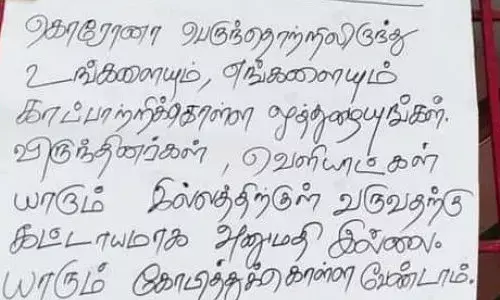 கொரோனா பெருந்தொற்றிலிருந்து
உங்களையும், எங்களையும்
காப்பாற்றிக்கொள்ள ஒத்துழையுங்கள்.
விருந்தினர்கள் , வெளியாட்கள்
யாரும் இல்லத்திற்குள் வருவதற்கு
கட்டாயமாக அனுமதி இல்லை.
யாரும் கோபித்துக்கொள்ள வேண்டாம்.